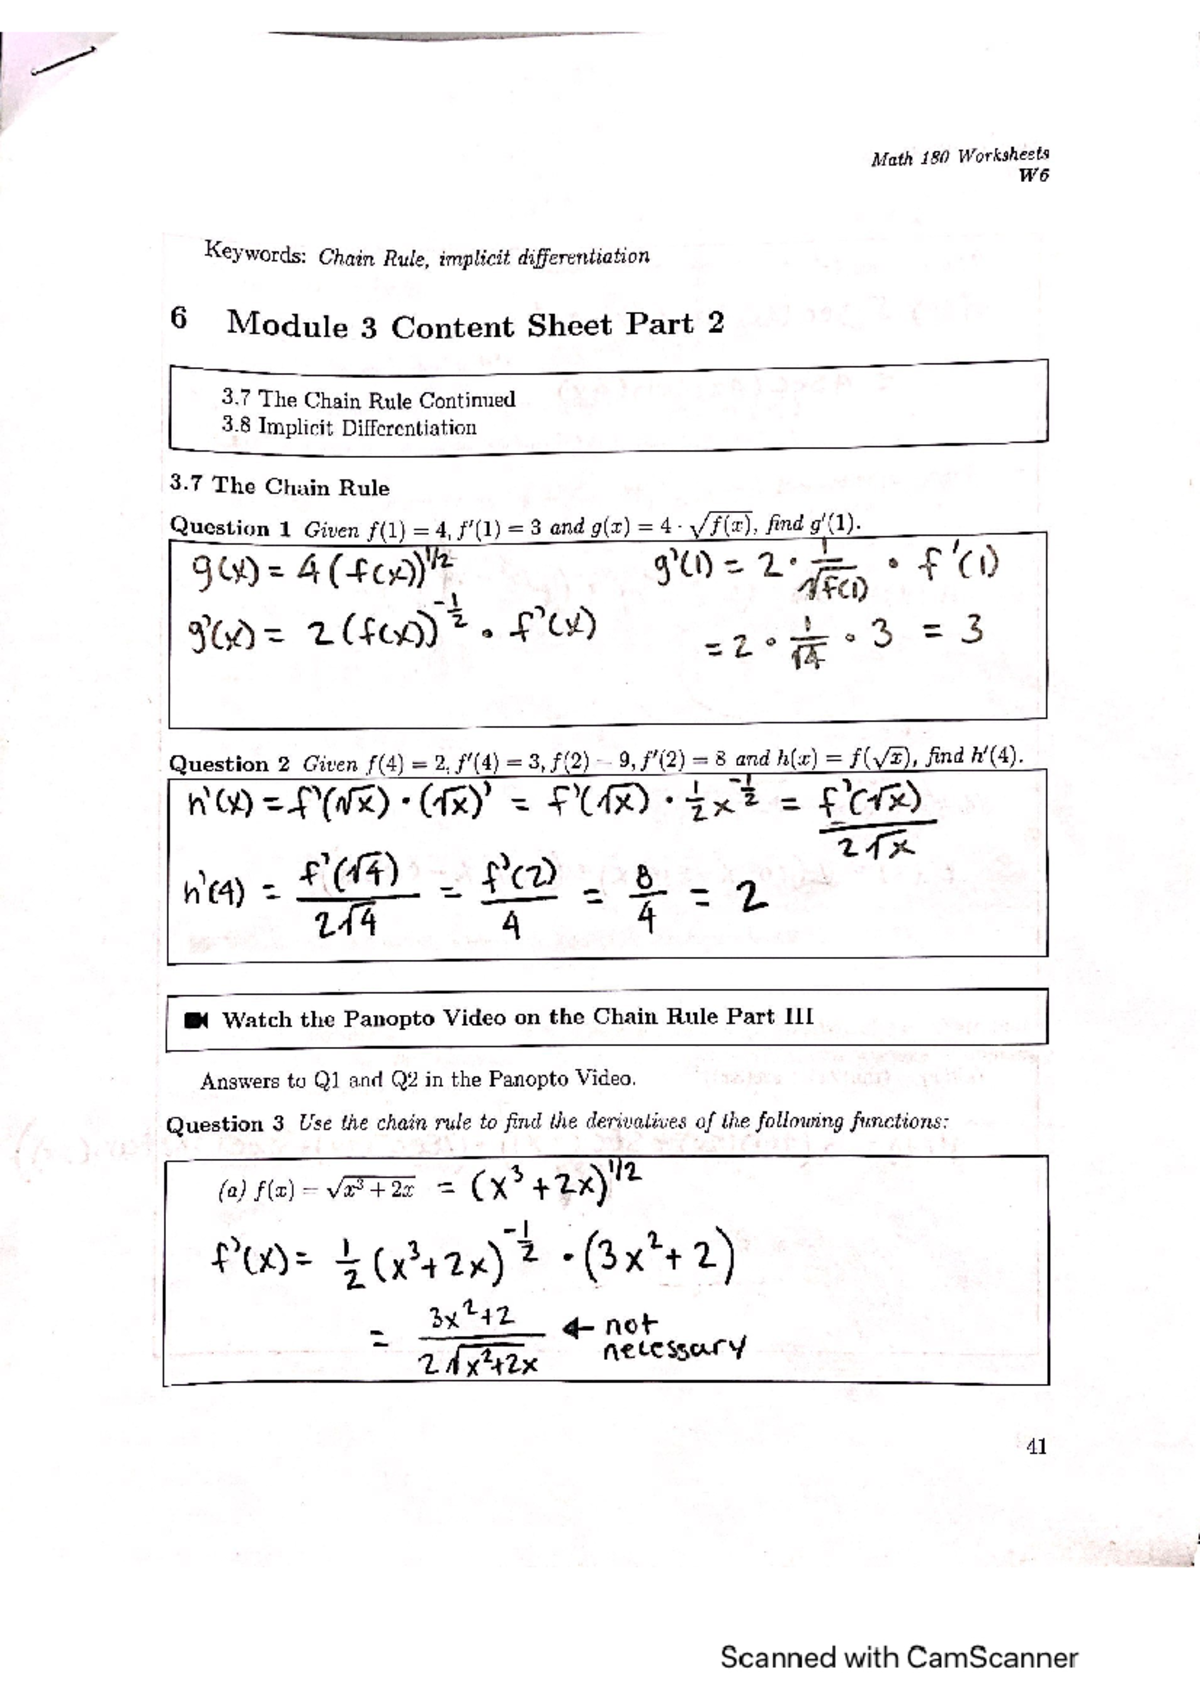 Math 180 Worksheets
W6
Keywords: Chain Rule, implicit differentiation
6 Module 3 Content Sheet Part 2
3.7 The Chain Rule Continued
3.8 Implicit Differentiation
3.7 The Chain Rule
Question 1 Given f(1) = 4, f'(1) = 3 and g(x) = 4 · √f(x), find g'(1).
g(x) = 4(f(x))^1/2
g'(x) = 2(f(x))^-1/2 · f'(x)
g'(1) = 2 · 1/√f(1) · f'(1)
= 2 · 1/√4 · 3 = 3
Question 2 Given f(4) = 2, f'(4) = 3, f(2) = 9, f'(2) = 8 and h(x) = f(√x), find h'(4).
h'(x) = f'(√x) · (√x)' = f'(√x) · 1/2 x^-1/2 = f'(√x)/2√x
h'(4) = f'(√4)/2√4 = f'(2)/4 = 8/4 = 2
Watch the Panopto Video on the Chain Rule Part III
Answers to Q1 and Q2 in the Panopto Video.
Question 3 Use the chain rule to find the derivatives of the following functions:
(a) f(x) = √x³ + 2x = (x³+2x)^1/2
f'(x) = 1/2 (x³+2x)^-1/2 · (3x²+2)
= 3x²+2/2√x²+2x ← not
necessary
41
Scanned with CamScanner